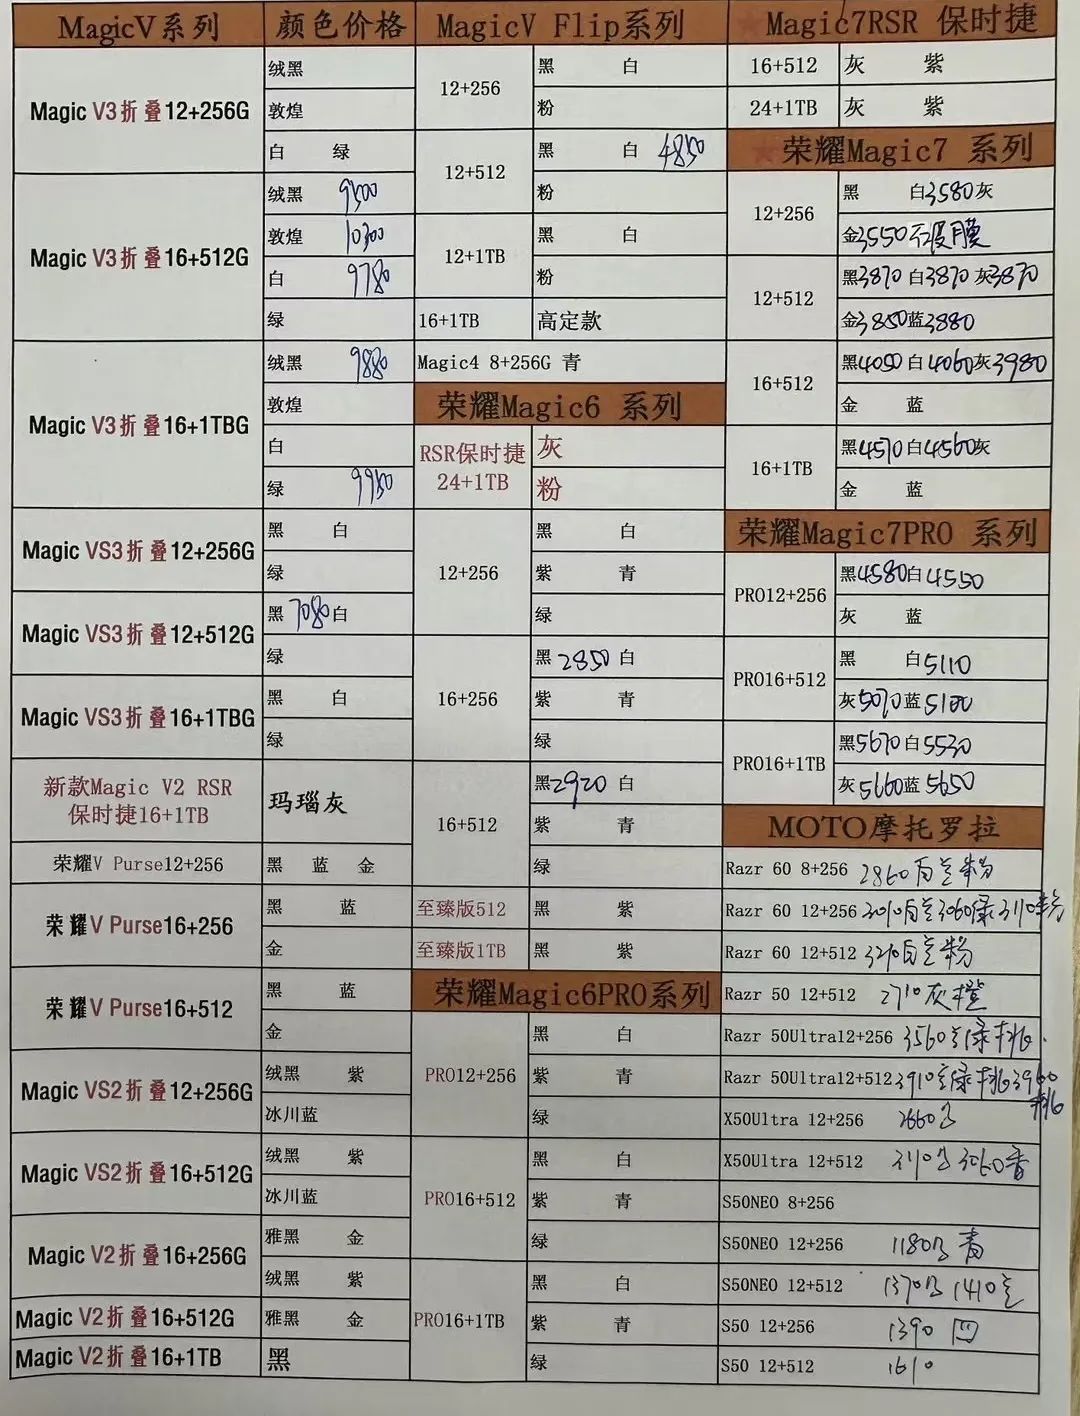 MagicV系列 颜色价格
Magic V3折叠12+256G
绒黑
敦煌
白 绿
Magic V3折叠16+512G
绒黑 9500
敦煌 10300
白 9780
绿
Magic V3折叠16+1TBG
绒黑 9880
敦煌
白
绿 9980
Magic VS3折叠12+256G
黑 白
绿
Magic VS3折叠12+512G
黑 7080 白
绿
Magic VS3折叠16+1TBG
黑 白
绿
新款Magic V2 RSR
保时捷16+1TB
玛瑙灰
荣耀V Purse12+256 黑 蓝 金
荣耀V Purse16+256
黑 蓝
金
荣耀V Purse16+512
黑 蓝
金
Magic VS2折叠12+256G
绒黑 紫
冰川蓝
Magic VS2折叠16+512G
绒黑 紫
冰川蓝
Magic V2折叠16+256G
雅黑 金
绒黑 紫
Magic V2折叠16+512G 雅黑 金
Magic V2折叠16+1TB 黑
MagicV Flip系列
12+256
黑 白
粉
12+512
黑 白 4850
粉
12+1TB
黑 白
粉
16+1TB 高定款
Magic4 8+256G 青
荣耀Magic6 系列
RSR保时捷
24+1TB
灰
粉
12+256
黑 白
紫 青
绿
16+256
黑 2850 白
紫 青
绿
16+512
黑2920 白
紫 青
绿
至臻版512 黑 紫
至臻版1TB 黑 紫
荣耀Magic6PRO系列
PRO12+256
黑 白
紫 青
绿
PRO16+512
黑 白
紫 青
绿
PRO16+1TB
黑 白
紫 青
绿
Magic7RSR 保时捷
16+512 灰 紫
24+1TB 灰 紫
荣耀Magic7 系列
12+256
黑 白3580灰
金3550 膜
12+512
黑3870 白3870 灰3870
金3850蓝3880
16+512
黑4050 白4060灰3980
金 蓝
16+1TB
黑4570白4560灰
金 蓝
荣耀Magic7PRO 系列
PRO12+256
黑4580白4550
灰 蓝
PRO16+512
黑 白5110
灰5070蓝5100
PRO16+1TB
黑5670白5530
灰5660蓝5650
MOTO摩托罗拉
Razr 60 8+256 2860 粉
Razr 60 12+256 3010 3060绿3110
Razr 60 12+512 3210 粉
Razr 50 12+512 2710灰橙
Razr 50Ultra12+256 3560 绿桃
Razr 50Ultra12+512 3910 绿桃3960
桃
X50Ultra 12+256 2660
X50Ultra 12+512 3110 3060青
S50NEO 8+256
S50NEO 12+256 1180 青
S50NEO 12+512 1370 1410
S50 12+256 1390
S50 12+512 1610